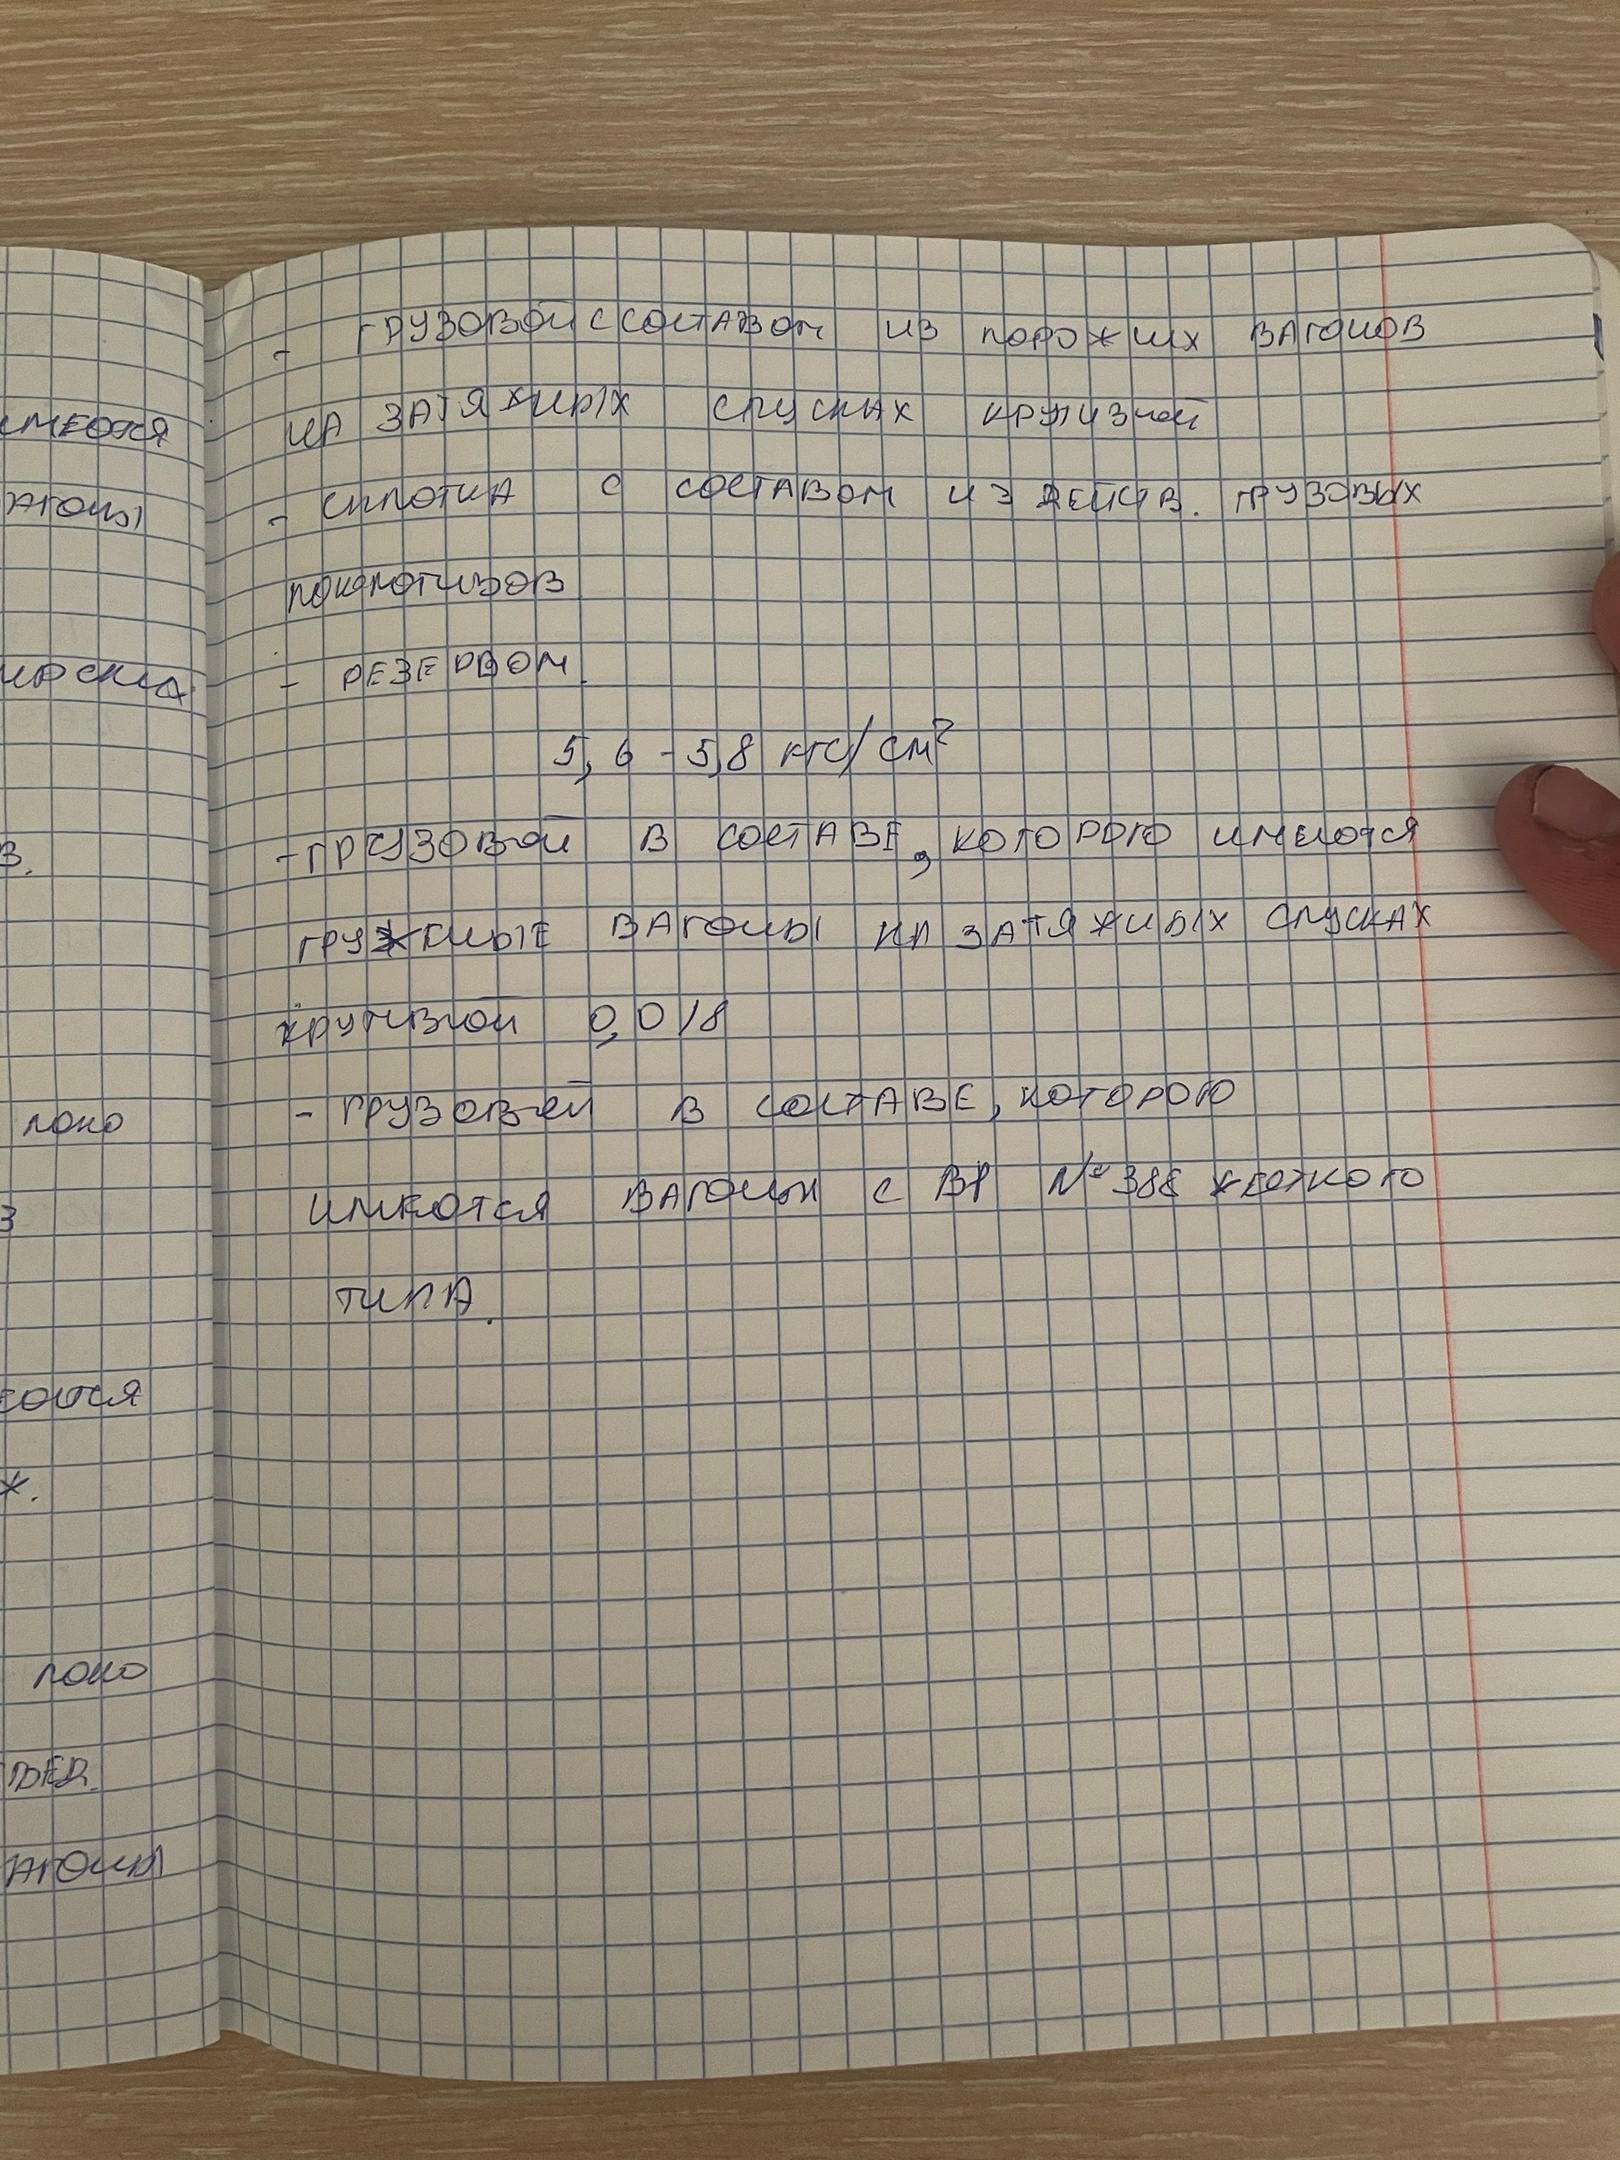 - грузовой с составом из порожих вагонов
на затяжных спусках крутизной
- сплотка с составом из действ. грузовых
локомотивов
- резервом.
5,6 - 5,8 кгс/см²
- грузовой в составе, которого имеются
груженые вагоны на затяжных спусках
крутизной 0,018
- грузовой в составе, которого
имеются вагоны с ВР № 388 жесткого
типа.
имеются
агоны
в.
локо
з
ж.
локо
вед.
агоны